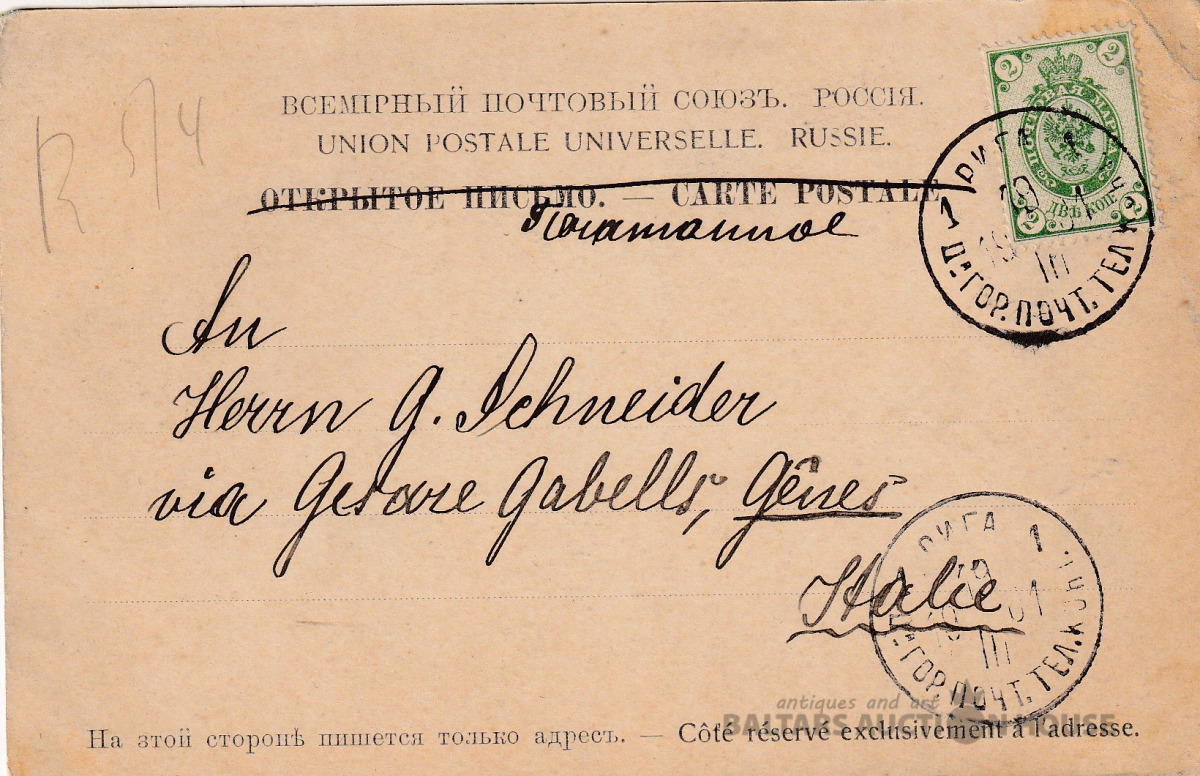 R 5/4
ВСЕМІРНЫЙ ПОЧТОВЫЙ СОЮЗЪ. РОССІЯ.
UNION POSTALE UNIVERSELLE. RUSSIE.
ОТКРЫТОЕ ПИСЬМО. — CARTE POSTALE
2 2
2 ДВѢ КОП. 2
РИГА 1
III
1 ГОР. ПОЧТ. ТЕЛ. К
An
Herrn G. Schneider
via Gesare Gabells, Gênes
Italie
РИГА 1
19
01
III
ГОР. ПОЧТ. ТЕЛ. КОН
antiques and art
BALTARS AUCTION HOUSE
На этой сторонѣ пишется только адресъ. — Côté réservé exclusivement à l'adresse.